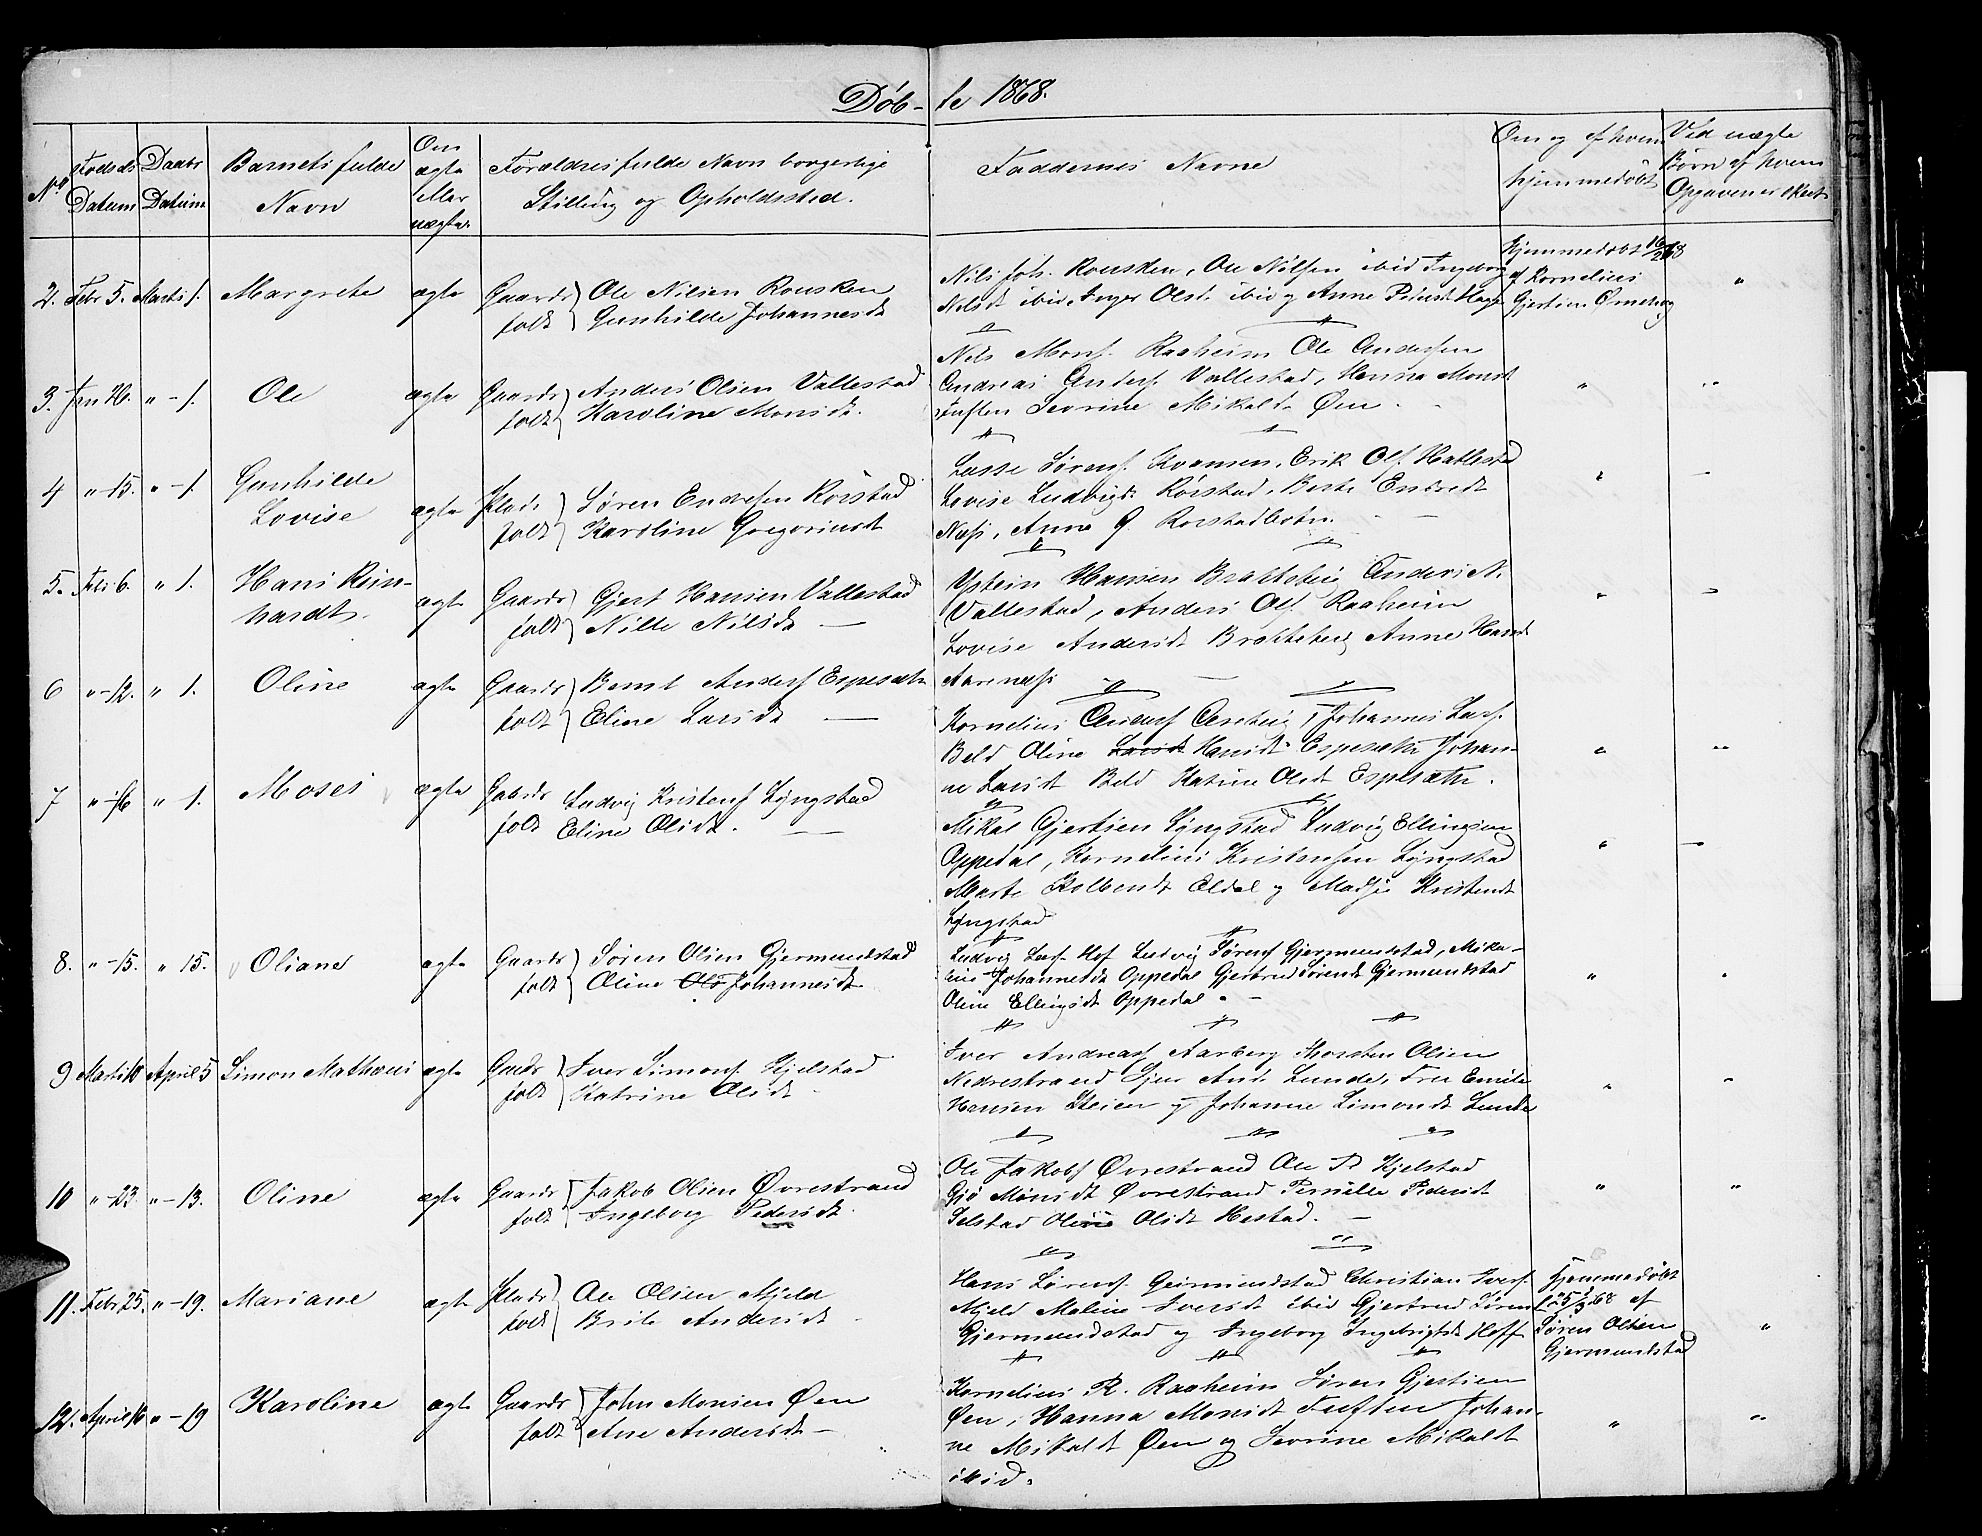 Døb-te 1868.
No Fødsels Datum Daabs Datum Barnets fulde Navn Om ægte eller uægte. Forældres fulde Navn borgerlige Stilling og Opholdssted. Faddernes Navne Om og af hvem hjemmedøbt Ved uægte Børn af hvem Opgaven er skeet.
2. Febr 5. Marts 1. Margrete ægte Gaardsfolk Ole Nilsen Rousken
Gunhilde Johannesdt
Nils Joh. Rousken, Ole Nilsen ibid Ingeborg
Nilsdt ibid, Inger Olsd. ibid og Anne Pedersdt
Hjemmedøbt 16/2 68
af Kornelius
Gjertsen "
3. Jan 26. " - 1. Ole ægte Gaardsfolk Anders Olsen Vallestad
Karoline Monsdt.
Nils Mons. Raaheim Ole Andersen
Andreas Anders. Vallestad, Hanna Monsdt
Tuften Sevrine Mikalsdt Øen - " "
4 " - 15. " - 1. Gunhilde
Lovise ægte Pladsfolk Søren Endresen Rørstad
Karoline Gregoriusdt
Lasse Sørens. Kvamen, Erik Ols. Hatlestad
Lovise Ludvigdt Rørstad, Berte Endredt
Næss, Anne G. " -
5. Feb 6. " 1. Hans Rein-
hardt. ægte Gaardsfolk Gjert Hansen Vallestad
Nille Nilsdt —
Østein Hansen Brattebeig Anders N.
Vallestad, Anders Ols. Raaheim
Lovise Andersdt Brattebeig Anne Hansdt
Aarenæss " -
6 " - 12. " 1. Oline ægte Gaardsfolk Bernt Anders. Espesætr
Eline Larsdt —
Kornelius Anders. Johannes Lars.
Beld Oline Larsdt Hansdt Espesætr Johan-
ne Larsdt Beld Katrine Olsdt Espesætr. " "
7 " - 16 " - 1. Moses ægte Gaardsfolk Ludvig Kristens. Lyngstad
Eline Olsdt. —
Mikal Gjertsen Lyngstad Ludvig Ellingsen
Oppedal, Kornelius Kristensen Lyngstad
Marte Kolbendt Eldal og Madsi Kristendt
Lyngstad " -
8. " - 15. " 15. Oliane ægte Gaardsfolk Søren Olsen Gjermundstad
Oline Ols Johannesdt
Ludvig Lars. Hof Ludvig Sørens. Gjermundstad, Mika-
line Johannesdt Oppedal Gjertrud Sørendt Gjermundstad
Oline Ellingsdt Oppedal. - " "
9 Marts 10 April 5 Simon Matheus ægte Gaardsfolk Iver Simons. Hjelstad
Katrine Olsdt
Iver Andreass Aarberg Thorsten Olsen
Nedrestrand Sjur And. Lunde, Fru Emilie
Hansen Steien og Johanne Simondt Lunde " "
10 " - 23. " - 13. Oline ægte Gaardsfolk Jakob Olsen Øvrestrand
Ingeborg Pedersdt
Ole Jakobs Øvrestrand Ole P. Hjelstad
Monsdt Øvrestrand Pernille Pedersdt
Selstad Oline Olsdt Hestad. — " "
11. Febr 25. " - 19. Mariane ægte Pladsfolk Ole Olsen Mjeld
Brite Andersdt
Hans Sørens. Geirmundstad Christian Ivers.
Mjeld Maline Iversdt ibid Gjertrud Sørendt
Gjermundstad og Ingeborg Ingebrigtsdt Hoff
Hjemmedøbt
5/3 68 af
Søren Olsen
Gjermundstad "
12. April 10 " - 19 Karoline ægte Gaardsfolk John Monsen Øen
Ane Andersdt —
Kornelius R. Raaheim Søren Gjertsen
Øen, Hanna Monsdt Tuften Johan-
ne Mikaldt Øen og Sevrine Mikaldt
ibid. " "